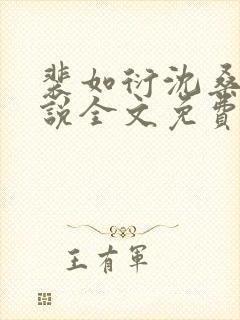 裴如衍沈桑
说全文免费
王有军